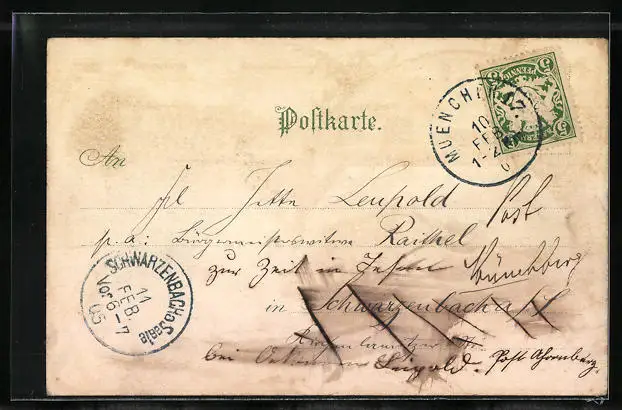 Postkarte.
MUENCHE
10
FEB
1-2
5 PFENNIG 5
An
Frl Jette Leupold
Post
p. a: Bürgermeisterswitwe Raithel
zur Zeit in Münchberg
in Schwarzenbach a/S
bei Leupold. Post Ahornberg.
SCHWARZENBACH a Saale
11
FEB.
Vor. 6-7
05